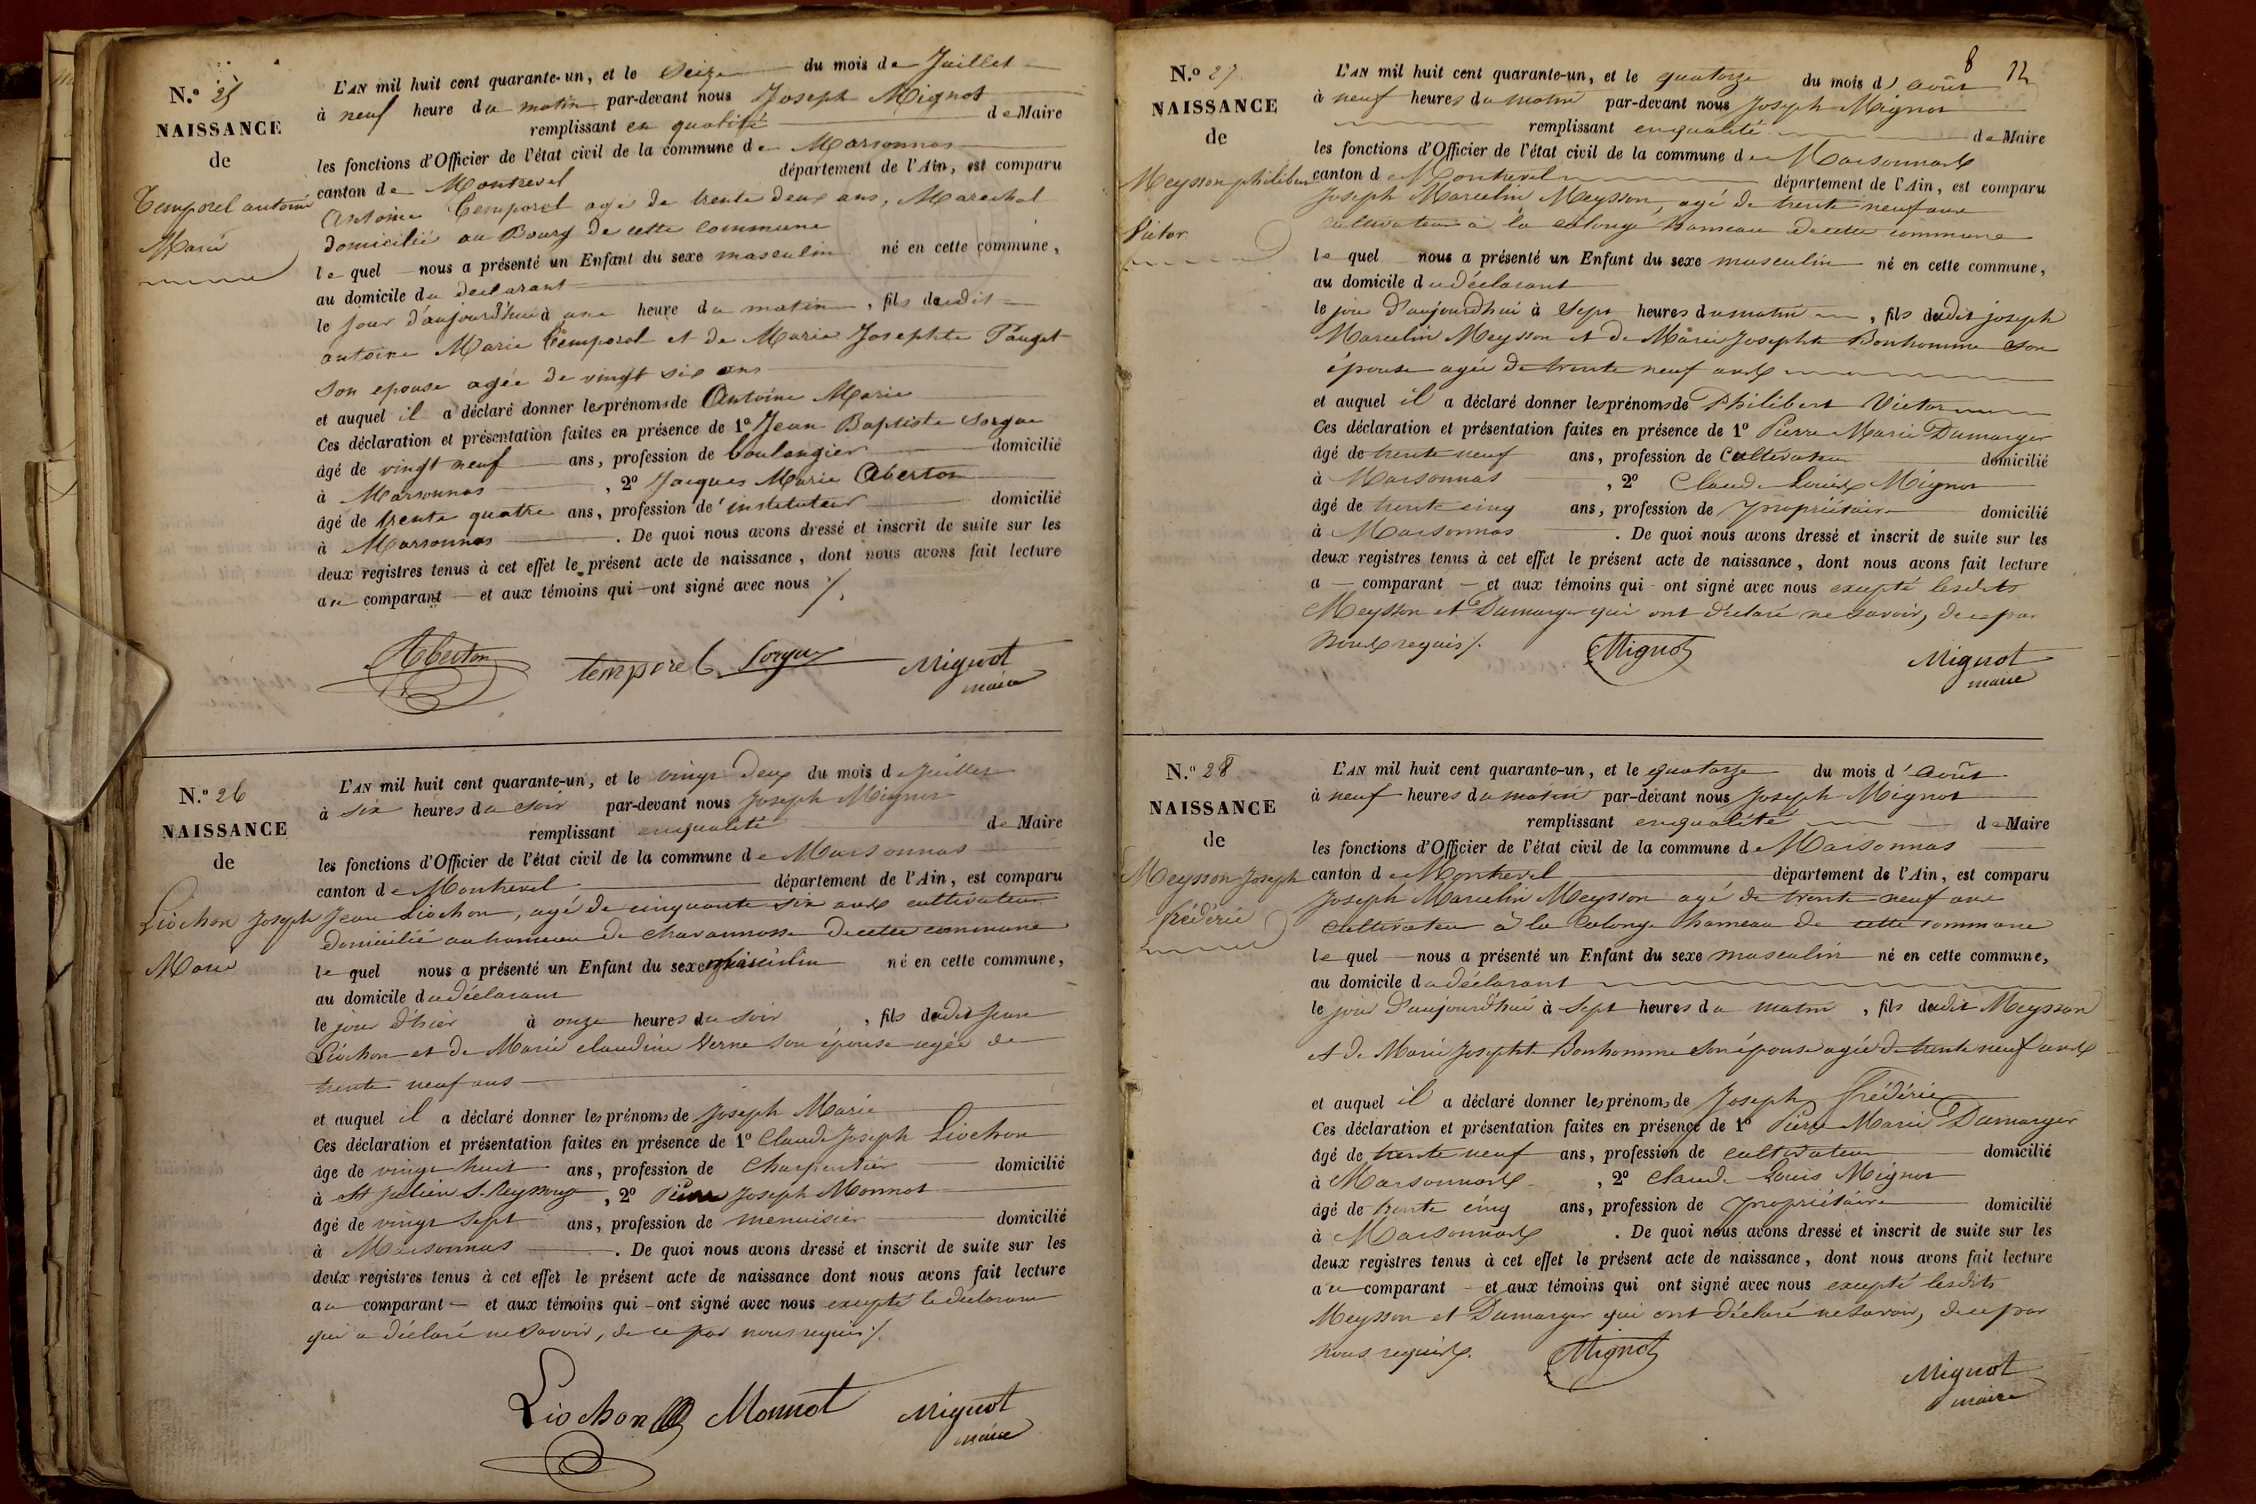 N.º 25
NAISSANCE
de
Temporel antoine
Marie
L'AN mil huit cent quarante-un, et le Seize du mois de Juillet
à neuf heure du matin par-devant nous Joseph Mignot
remplissant en qualité de Maire
les fonctions d'Officier de l'état civil de la commune de Marsonnas
canton de Montrevel département de l'Ain, est comparu
Antoine Temporel agé de trente deux ans, Marechal
domicilié au Bourg de cette commune
le quel nous a présenté un Enfant du sexe masculin né en cette commune,
au domicile du déclarant
le jour d'aujourd'hui à une heure du matin, fils dudit
antoine Marie Temporel et de Marie Josephte Pauget
son epouse agée de vingt six ans
et auquel il a déclaré donner les prénoms de Antoine Marie
Ces déclaration et présentation faites en présence de 1º Jean Baptiste Sorgue
âgé de vingt neuf ans, profession de boulangier domicilié
à Marsonnas, 2º Jacques Marie Aberton
âgé de trente quatre ans, profession de instituteur domicilié
à Marsonnas. De quoi nous avons dressé et inscrit de suite sur les
deux registres tenus à cet effet le présent acte de naissance, dont nous avons fait lecture
au comparant et aux témoins qui ont signé avec nous /.
Aberton temporel Sorgue Mignot
maire
N.º 26
NAISSANCE
de
Liochon Joseph
Marie
L'AN mil huit cent quarante-un, et le vingt deux du mois de Juillet
à six heures du soir par-devant nous Joseph Mignot
remplissant en qualité de Maire
les fonctions d'Officier de l'état civil de la commune de Marsonnas
canton de Montrevel département de l'Ain, est comparu
Jean Liochon, agé de cinquante six ans cultivateur
domicilié au hameau de chavannosse de cette commune
le quel nous a présenté un Enfant du sexe masculin né en cette commune,
au domicile du déclarant
le jour d'hier à onze heures du soir, fils dudit Jean
Liochon et de Marie claudine Verne son épouse agée de
trente neuf ans
et auquel il a déclaré donner les prénoms de Joseph Marie
Ces déclaration et présentation faites en présence de 1º Claude Joseph Liochon
âgé de vingt huit ans, profession de Charpentier domicilié
à St Julien S. Reyssouze, 2º Pierre Joseph Monnot
âgé de vingt sept ans, profession de menuisier domicilié
à Marsonnas. De quoi nous avons dressé et inscrit de suite sur les
deux registres tenus à cet effet le présent acte de naissance dont nous avons fait lecture
au comparant et aux témoins qui ont signé avec nous excepté le déclarant
qui a déclaré ne savoir, de ce par nous requis /.
Liochon Monnot Mignot
maire
8 12
N.º 27
NAISSANCE
de
Meysson philibert
Victor
L'AN mil huit cent quarante-un, et le quatorze du mois d'août
à neuf heures du matin par-devant nous Joseph Mignot
remplissant en qualité de Maire
les fonctions d'Officier de l'état civil de la commune de Marsonnas
canton de Montrevel département de l'Ain, est comparu
Joseph Marcelin Meysson, agé de trente neuf ans
cultivateur à la colonge hameau de cette commune
le quel nous a présenté un Enfant du sexe masculin né en cette commune,
au domicile du déclarant
le jour d'aujourd'hui à Sept heures du matin, fils dudit joseph
Marcelin Meysson et de Marie Josephte Bonhomme son
épouse agée de trente neuf ans
et auquel il a déclaré donner les prénoms de Philibert Victor
Ces déclaration et présentation faites en présence de 1º Pierre Marie Damarger
âgé de trente neuf ans, profession de Cultivateur domicilié
à Marsonnas, 2º Claude Louis Mignot
âgé de trente cinq ans, profession de propriétaire domicilié
à Marsonnas. De quoi nous avons dressé et inscrit de suite sur les
deux registres tenus à cet effet le présent acte de naissance, dont nous avons fait lecture
a comparant et aux témoins qui ont signé avec nous excepté lesdits
Meysson et Damarger qui ont déclaré ne savoir, de ce par
nous requis /.
Mignot Mignot
maire
N.º 28
NAISSANCE
de
Meysson Joseph
frédéric
L'AN mil huit cent quarante-un, et le quatorze du mois d'Août
à neuf heures du matin par-devant nous Joseph Mignot
remplissant en qualité de Maire
les fonctions d'Officier de l'état civil de la commune de Marsonnas
canton de Montrevel département de l'Ain, est comparu
Joseph Marcelin Meysson agé de trente neuf ans
cultivateur à la Colonge hameau de cette commune
le quel nous a présenté un Enfant du sexe masculin né en cette commune,
au domicile du déclarant
le jour d'aujourd'hui à sept heures du matin, fils dudit Meysson
et de Marie Josephte Bonhomme son épouse agée de trente neuf ans
et auquel il a déclaré donner les prénoms de Joseph Frédéric
Ces déclaration et présentation faites en présence de 1º Pierre Marie Damarger
âgé de trente neuf ans, profession de cultivateur domicilié
à Marsonnas, 2º Claude Louis Mignot
âgé de trente cinq ans, profession de propriétaire domicilié
à Marsonnas. De quoi nous avons dressé et inscrit de suite sur les
deux registres tenus à cet effet le présent acte de naissance, dont nous avons fait lecture
au comparant et aux témoins qui ont signé avec nous excepté lesdits
Meysson et Damarger qui ont déclaré ne savoir, de ce par
nous requis.
Mignot Mignot
maire